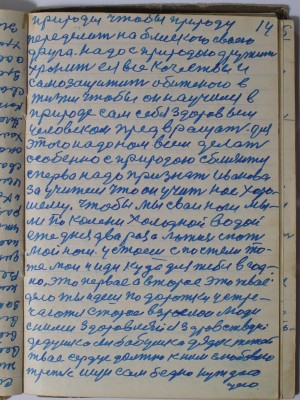 природы чтобы природу 14
передавать на ближнего своего
друга. надо с природою дружить
хранит ея все качества и
самозащитит обижоного в
жизни чтобы он научился в
природе сам себя здоровым
человеком предвращать. для
этого надо нам всем делать
особенно с природою сближиту
сперва надо признать Иванова
за учителя что он учит нас хоро
шему, чтобы мы свои ноги мы
ли по колени холодной водой
ежедневно два раза ложась спать
мой ноги устаеш с постели то
же мой и иди куда для тебя в год
но, это первое а второе это твое
дело ты идеш по дорожки устре
чаются старое взрослое люди
с ними здоровайся здравствуй
дедушка или бабушка дядя тетя
твае сердце должно к ним
третье ищи сам бедно нуждаю
щего